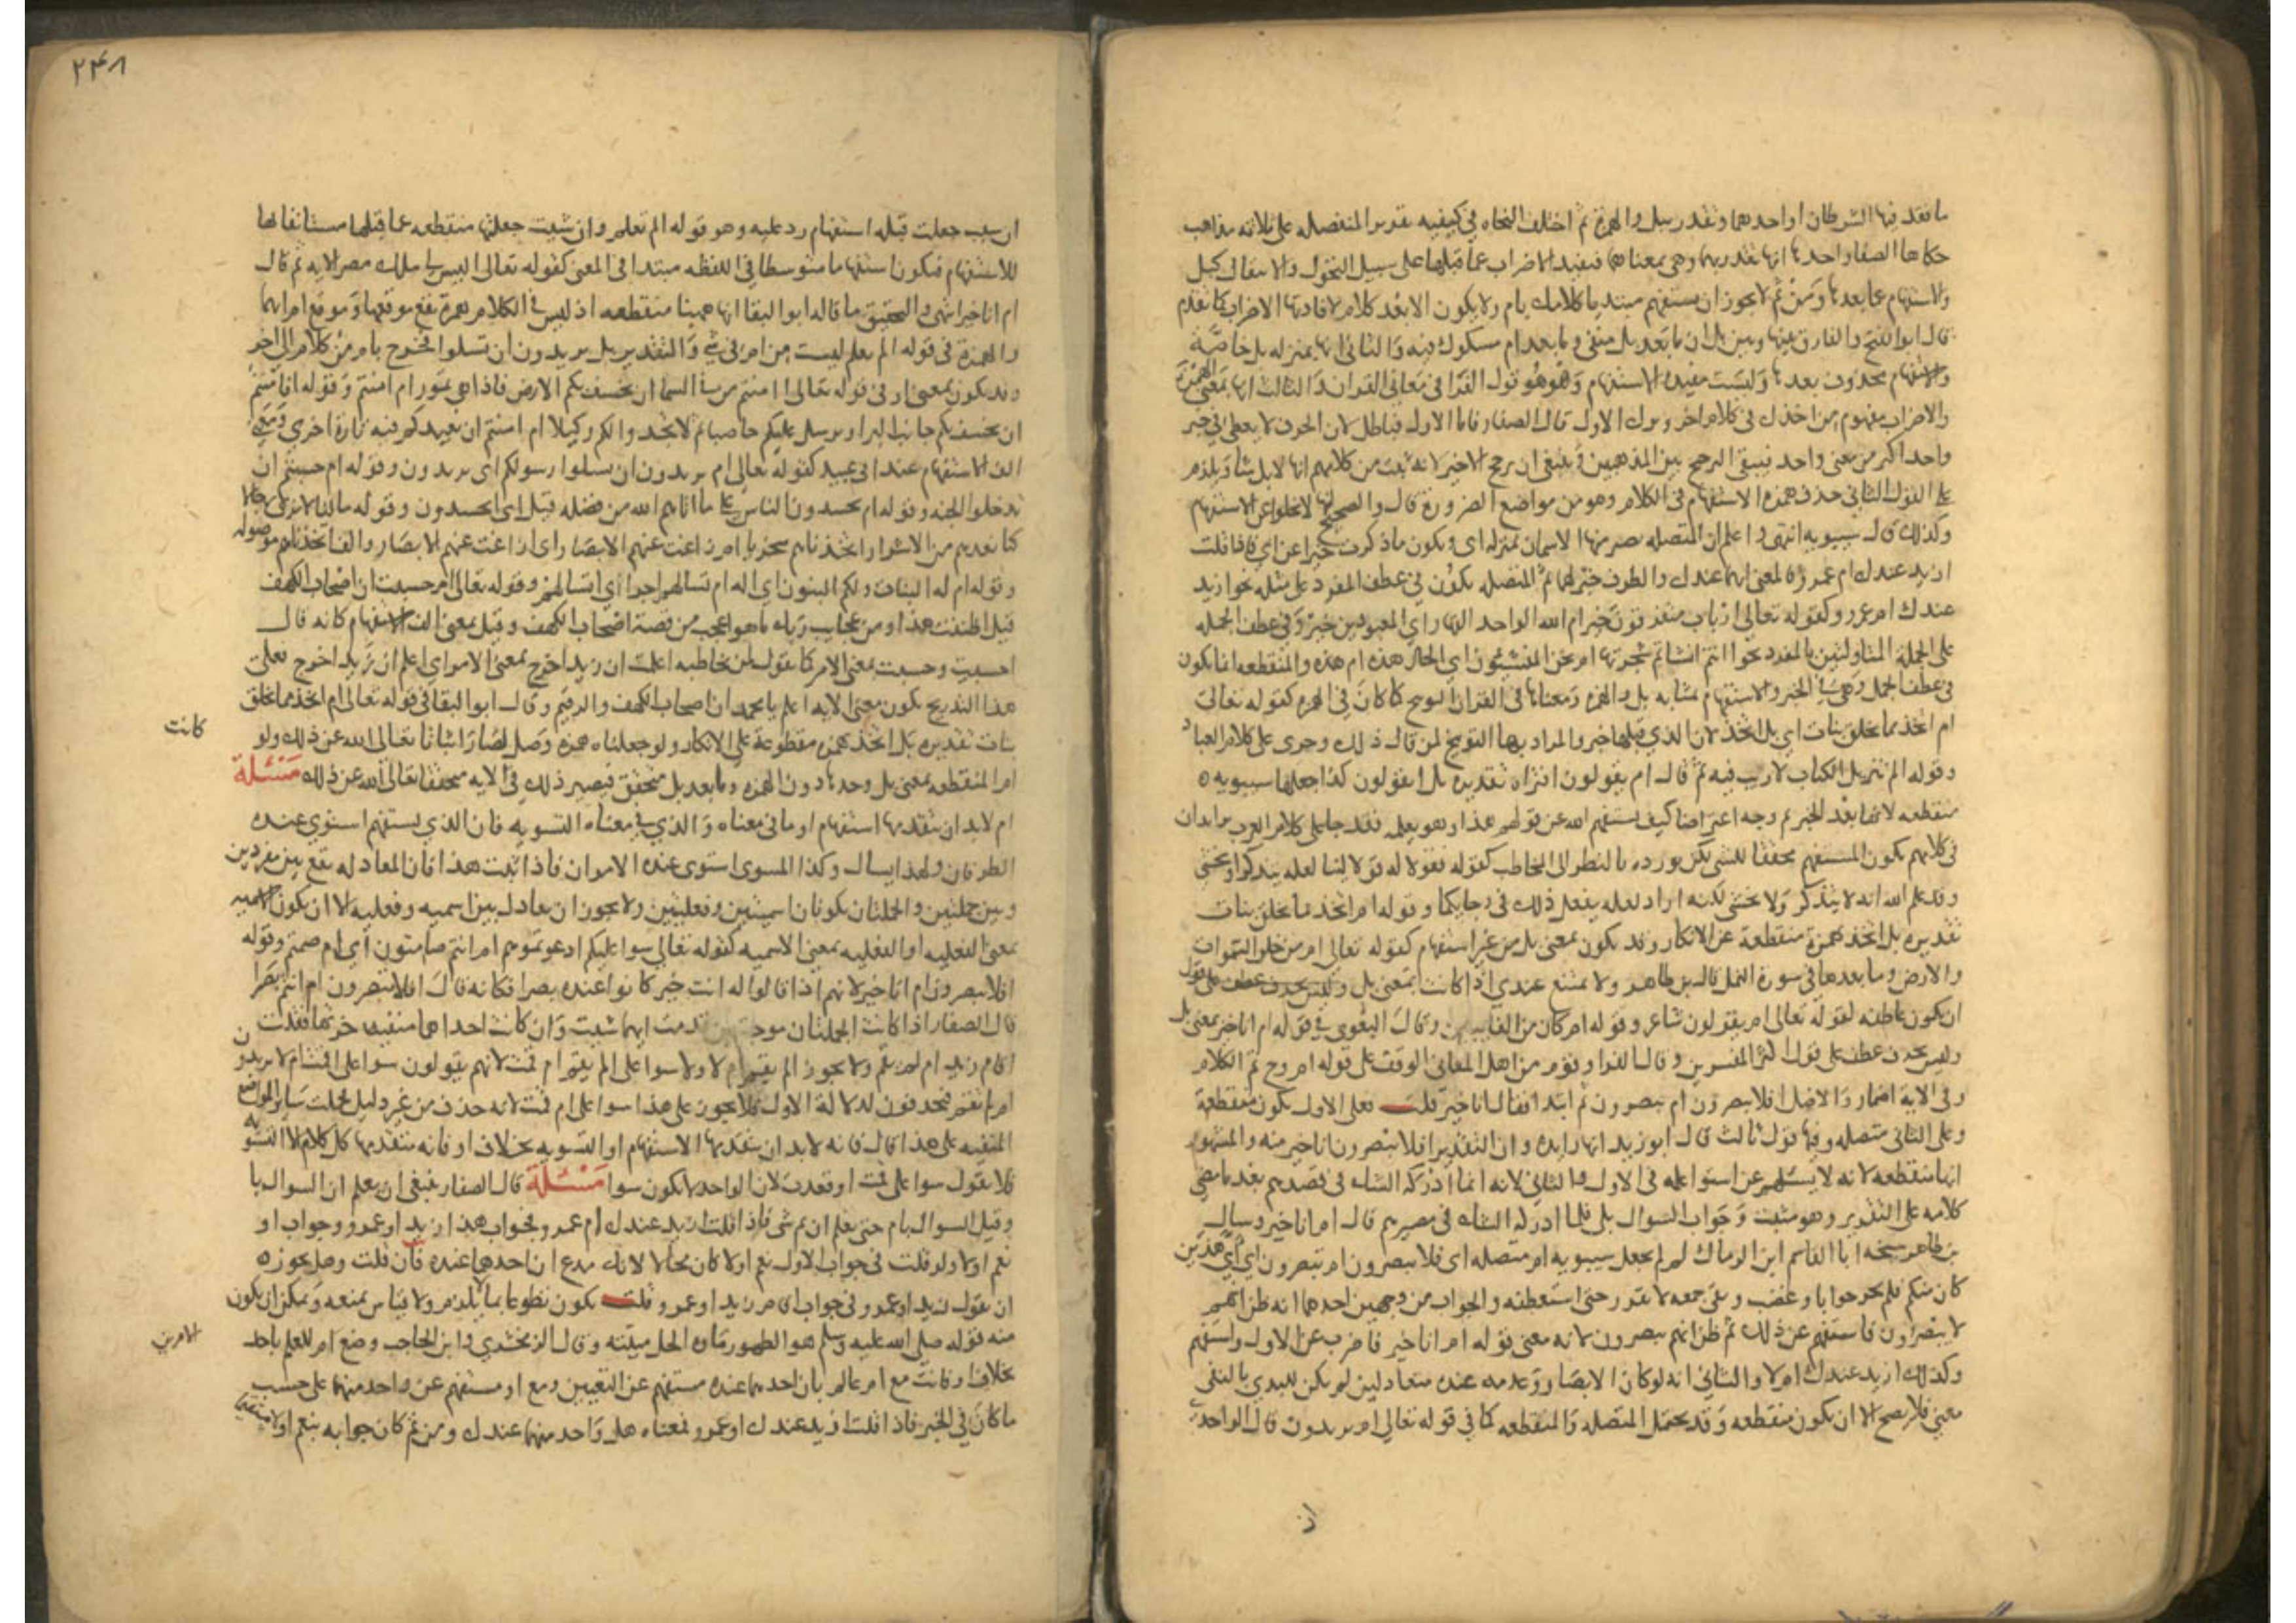 ما فقد فيها الشرطان او احدهما وتقدر ببل والهمزة ثم اختلف النحاه في كيفيه تقدير المنفصله على ثلاثه مذاهب
حكاها الصفار احدها انها تقدر بهما وهي بمعناهما فتفيد الاضراب عما قبلها على سبيل التحول والانتقال كبل
والاستفهام عما بعدها ومن ثم لا يجوز ان يستفهم مبتديا كلامك بام ولا يكون الا بعد كلام لافادتها الاضراب كما تقدم
قال ابو الفتح والفارق بينها وبين بل ان ما بعد بل منفي وما بعد ام مشكوك فيه والثاني انها بمنزله بل خاصة
والاستفهام محذوف بعدها وليست مفيدة الاستفهام وهو قول الفرا في معاني القران والثالث انها بمعنى الهمزة
والاضراب مفهوم من اخذك في كلام اخر وترك الاول قال الصفار فاما الاول فباطل لان الحرف لا يعطي في حيز
واحد اكثر من معنى واحد فيبقى الترجيح بين المذهبين وينبغي ان يرجح الاخير لانه ثبت من كلامهم انها لابل ام شاء ويلزم
على القول الثاني حذف همزة الاستفهام في الكلام وهو من مواضع الضرورة قال والصحيح انها لا تخلو عن الاستفهام
وكذلك قال سيبويه انتهى واعلم ان المتصله يصير معها الاسمان بمنزله اي ويكون ما ذكرت خبرا عن اي فاذا قلت
ازيد عندك ام عمرو فالمعنى ايهما عندك والظرف خبر لهما ثم المتصله يكون في عطف المفرد على مثله نحو ازيد
عندك ام عمرو وكقوله تعالى ارباب متفرقون خير ام الله الواحد القهار اي المعبودين خير وفي عطف الجمله
على الجملة المتاولتين بالمفرد نحو اانتم انشاتم شجرتها ام نحن المنشئون اي الحال هذه ام هذه والمنقطعه انما يكون
في عطف الجمل وهي في الخبر والاستفهام بمثابه بل والهمزة ومعناها في القران التوبيخ كما كان في الهمزه كقوله تعالى
ام اتخذ مما يخلق بنات اي بل اتخذ لان الذي قبلها خبر والمراد بها التوبيخ لمن قال ذلك وجرى على كلام العباد
وقوله الم تنزيل الكتاب لا ريب فيه ثم قال ام يقولون افتراه تقديره بل ايقولون كذا جعلها سيبويه
منقطعه لانها بعد الخبر ثم وجه اعتراضا كيف يستفهم الله عن قولهم هذا وهو يعلمه فقد جا على كلام العرب يريد ان
في كلامهم يكون المستفهم محققا للشي لكن يورده بالنظر الى المخاطب كقوله فقولا له قولا لينا لعله يتذكر او يخشى
وقد علم الله انه لا يتذكر ولا يخشى لكنه اراد لعله يفعل ذلك في رجايكما وقوله ام اتخذ مما يخلق بنات
تقديره بل اتخذ بهمزة منقطعة عن الانكار وقد يكون بمعنى بل من غير استفهام كقوله تعالى ام من خلق السموات
والارض وما بعدها في سورة النمل قال بن طاهر ولا يمتنع عندي اذا كانت بمعنى بل
ان يكون عاطفه لقوله تعالى ام يقولون شاعر وقوله ام كان من الغايبين وقال البغوي في قوله ام انا خير بمعنى بل
وليس بحرف عطف على قول اكثر المفسرين وقال الفرا وقوم من اهل المعاني الوقف على قوله ام وح تم الكلام
وفي الاية اضمار والاصل افلا تبصرون ام تبصرون ثم ابتدا فقال انا خير قلت فعلى الاول يكون منقطعة
وعلى الثاني متصله وفيها قول ثالث قال ابو زيد انها زايده وان التقدير افلا تبصرون انا خير منه والمشهور
انها منقطعه لانه لا يسئلهم عن استوا علمه في الاول والثاني لانه انما ادركه الشك في تبصرهم بعد ما مضى
كلامه على التقرير وهو مثبت وجواب السوال بلى فلما ادركه الشك في تبصرهم قال ام انا خير وسال
بن طاهر شيخه ابا القاسم ابن الرماك لم لم يجعل سيبويه ام متصله اي افلا تبصرون ام تبصرون اي اي هذين
كان منكم فلم يحر جوابا وغضب وبقي جمعه لا تقرر حتى استعطفه والجواب من وجهين احدهما انه ظن انهم
لا يبصرون فاستفهم عن ذلك ثم ظن انهم يبصرون لانه معنى قوله ام انا خير فاضرب عن الاول واستفهم
وكذلك ازيد عندك ام لا والثاني انه لو كان الابصار وعدمه عنده متعادلين لم يكن للبدي بالنفي
معنى فلا يصح الا ان يكون منقطعه وقد يحتمل المتصله والمنقطعه كما في قوله تعالى ام يريدون قال الواحدي
ان
٢٣٨
ان شيت جعلت قبله استفهام رد عليه وهو قوله الم تعلم وان شيت جعلتها منقطعه عما قبلها مستانفا لها
للاستفهام فيكون استفهاما متوسطا في اللفظه مبتدا في المعنى كقوله تعالى اليس لي ملك مصر الايه ثم قال
ام انا خير انتهى والتحقيق ما قاله ابو البقا انها ههنا منقطعه اذ ليس في الكلام همزة تقع موقعها وموقع ام ايهما
والهمزة في قوله الم تعلم ليست من ام في شي والتقدير بل يريدون ان تسلوا فخرج بام من كلام الى اخر
وقد يكون بمعنى او في قوله تعالى اامنتم من في السما ان يخسف بكم الارض فاذا هي تمور ام امنتم وقوله افامنتم
ان يخسف بكم جانب البر او يرسل عليكم حاصبا ثم لا تجدوا لكم وكيلا ام امنتم ان يعيدكم فيه تارة اخرى وبمعنى
الف الاستفهام عند ابي عبيد كقوله تعالى ام يريدون ان تسلوا رسولكم اى يريدون وقوله ام حسبتم ان
تدخلوا الجنه وقوله ام يحسدون الناس على ما اتاهم الله من فضله قيل اى ايحسدون وقوله ما لنا لا نرى رجالا
كنا نعدهم من الاشرار اتخذناهم سخريا ام زاغت عنهم الابصار اى ازاغت عنهم الابصار والف اتخذناهم موصوله
وقوله ام له البنات ولكم البنون اي اله ام تسالهم اجرا اي اتسالهم وقوله تعالى ام حسبت ان اصحاب الكهف
قيل اظننت هذا ومن عجايب ربك ما هو اعجب من قصة اصحاب الكهف وقيل بمعنى الف الاستفهام كانه قال
احسبت وحسبت بمعنى الامر كما تقول لمن تخاطبه اعلمت ان زيدا خرج بمعنى الامر اي اعلم ان زيدا خرج فعلى
هذا التدريج يكون معنى الايه اعلم يا محمد ان اصحاب الكهف والرقيم وقال ابو البقا في قوله تعالى ام اتخذ مما يخلق
بنات تقديره بل اتخذ بهمزه مقطوعة على الانكار ولو جعلناه همزه وصل لصار اثباتا تعالى الله عن ذلك ولو
كانت
ام المنقطعه بمعنى بل وحدها دون الهمزه وما بعد بل متحقق فيصير ذلك في الايه متحققا تعالى الله عن ذلك مسئلة
ام لابد ان يتقدمها استفهام او ما في معناه والذي في معناه التسويه فان الذي يستفهم استوى عنده
الطرفان ولهذا يسال وكذا المسوى استوى عنده الامران فاذا ثبت هذا فان المعادله تقع بين مفردين
وبين جملتين والجملتان يكونان اسميتين وفعليتين ولا يجوز ان يعادل بين اسميه وفعليه الا ان يكون الاسميه
بمعنى الفعليه او الفعليه بمعنى الاسميه كقوله تعالى سوا عليكم ادعوتموهم ام انتم صامتون اي ام صمتم وقوله
افلا تبصرون ام انا خير لانهم اذا قالوا له انت خير كانوا عنده بصرا فكانه قال افلا تبصرون ام انتم بصرا
قال الصفار اذا كانت الجملتان موجبتين قدمت ايهما شيت وان كانت احداهما منفيه اخرتها فقلت
اقام زيد ام لم يقم ولا يجوز الم يقم ام لا ولا سوا على الم يقم ام قمت لانهم يقولون سوا على اقمت ام لا يريدون
ام لم تقم فيحذفون لدلالة الاول فلا يجوز على هذا سوا على ام قمت لانه حذف من غير دليل فحملت ساير المواضع
المنفيه على هذا قال فانه لابد ان يتقدمها الاستفهام او التسويه بخلاف او فانه يتقدمها كل كلام الا التسويه
فلا يقول سوا على قمت او قعدت لان الواحد لا يكون سوا مسئلة قال الصفار ينبغي ان يعلم ان السوال باو
وقيل السوال بام حتى يعلم ان ثم شى فاذا قلت ازيد عندك ام عمرو فجواب هذا زيد او عمرو وجواب او
نعم او لا ولو قلت في جواب الاول نعم او لا كان محالا لانك مدع ان احدهما عنده فان قلت وهل يجوز
ان يقول زيد او عمرو في جواب اقام زيد او عمرو قلت يكون تطوعا بما لا يلزم ولا قياس يمنعه ويمكن ان يكون
منه قوله صلى الله عليه وسلم هو الطهور ماؤه الحل ميتته وقال الزمخشري وابن الحاجب وضع ام للعلم باحد
الامرين
بخلاف او فانت مع ام عالم بان احدهما عنده مستفهم عن التعيين ومع او مستفهم عن واحد منهما على حسب
ما كان في الخبر فاذا قلت ازيد عندك او عمرو فمعناه هل واحد منهما عندك ومن ثم كان جوابه بنعم او لا مستقيما